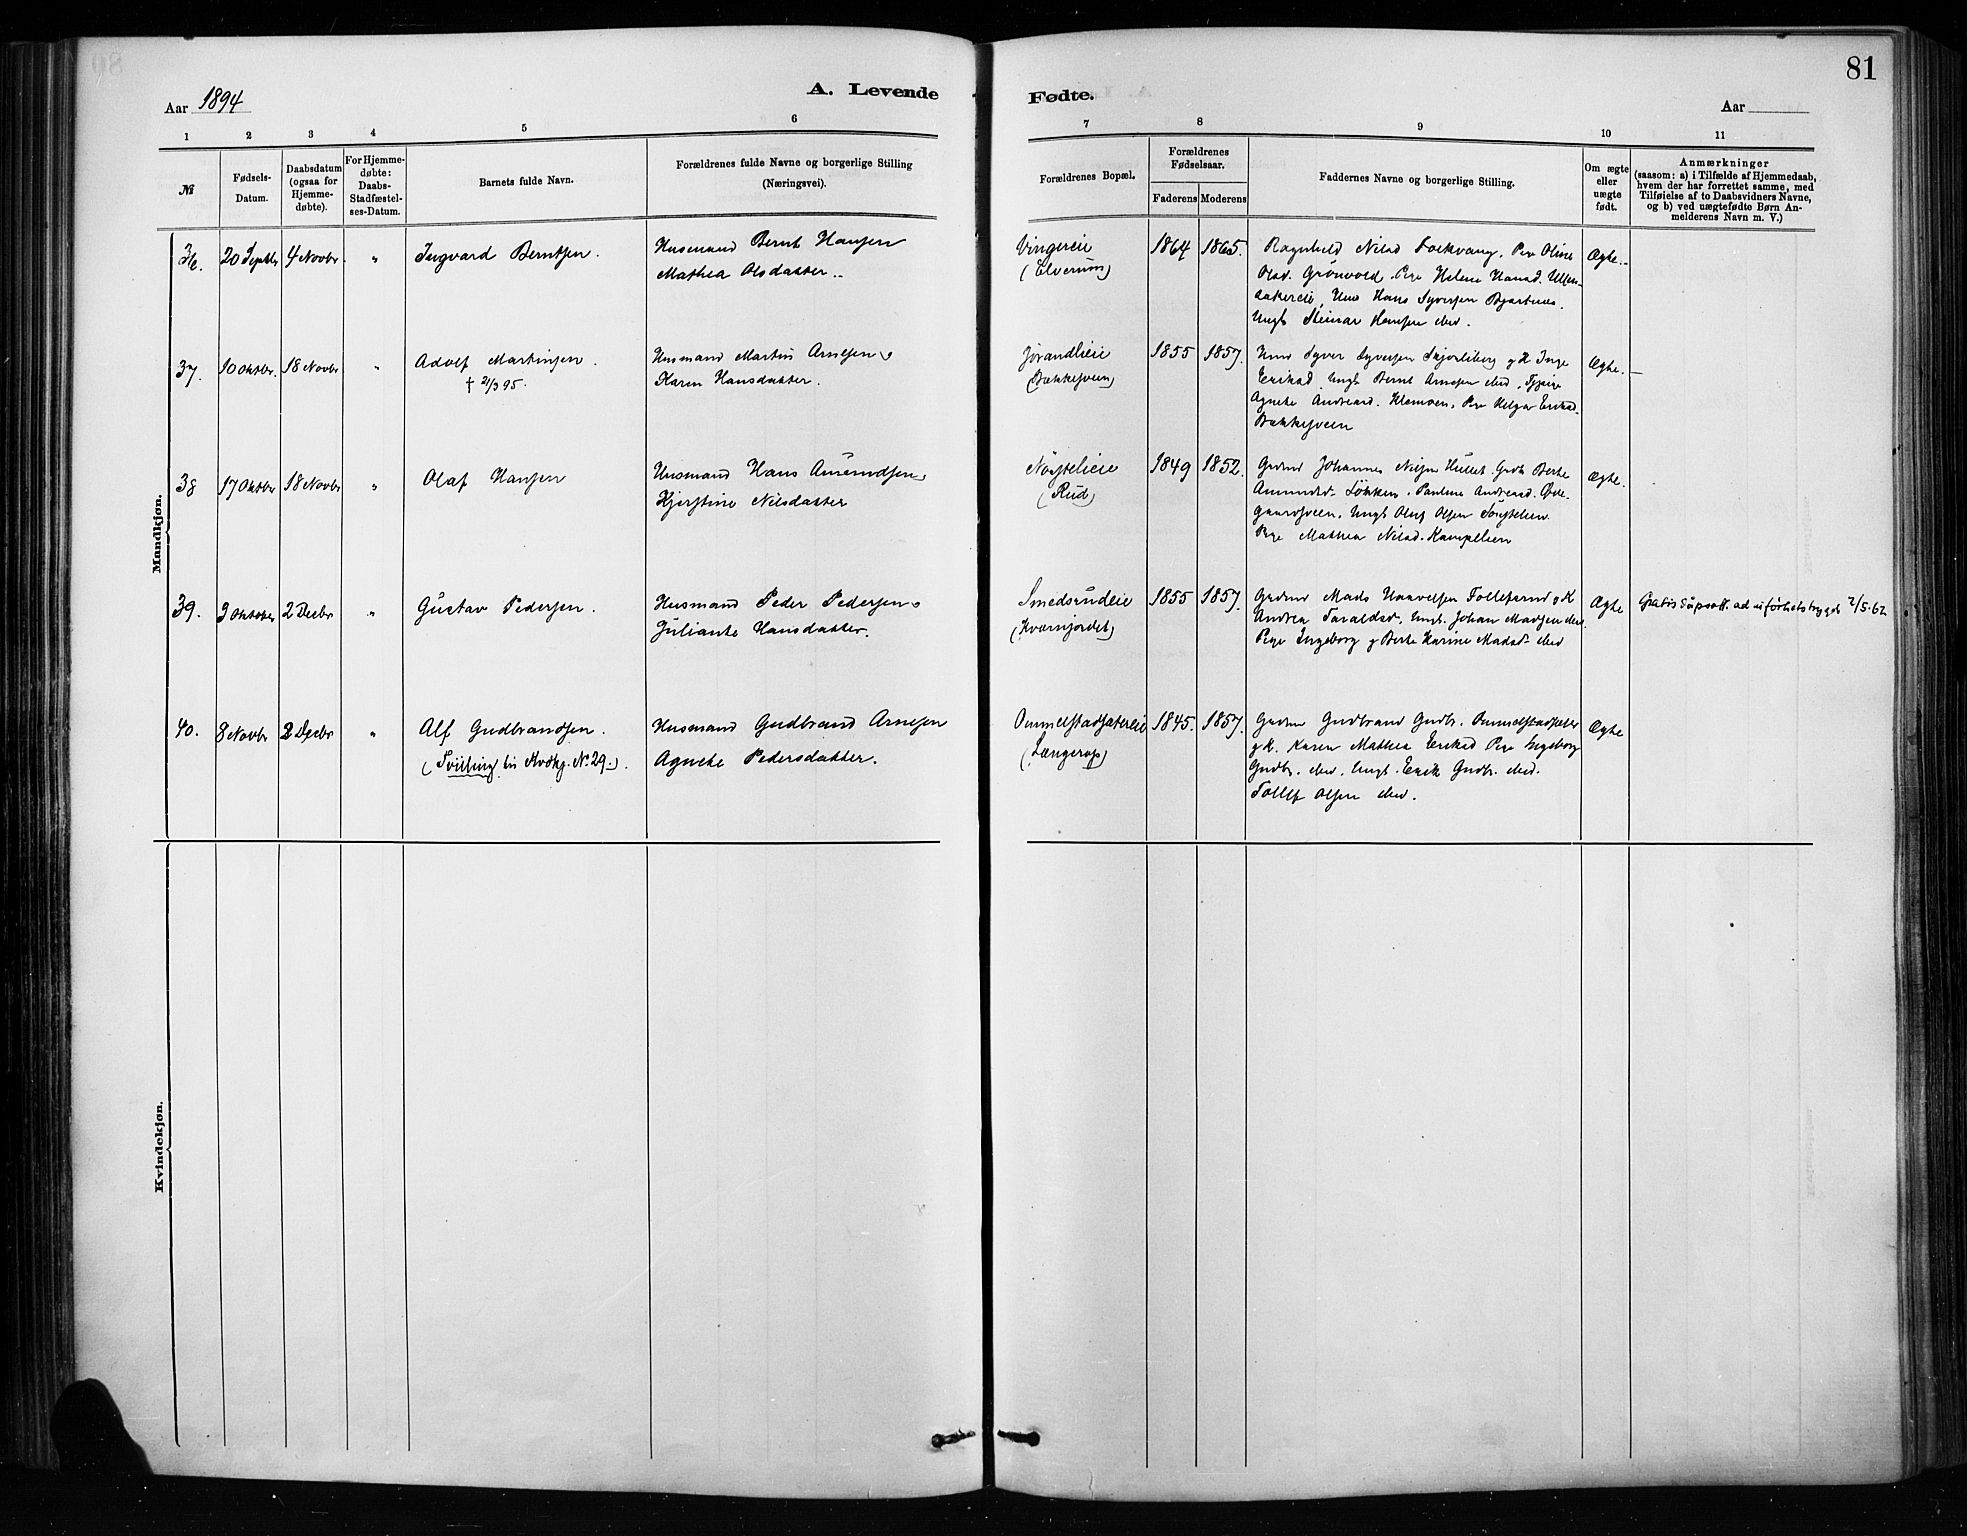 Aar 1894
A. Levende
Fødte.
Aar
81
1 2 3 4 5 6 7 8 9 10 11
№
Fødsels-
Datum.
Daabsdatum
(ogsaa for
Hjemme-
døbte).
For Hjemme-
døbte:
Daabs-
Stadfæstel-
ses-Datum.
Barnets fulde Navn.
Forældrenes fulde Navne og borgerlige Stilling
(Næringsvei).
Forældrenes Bopæl.
Forældrenes
Fødselsaar.
Faderens Moderens
Faddernes Navne og borgerlige Stilling.
Om ægte
eller
uægte
født.
Anmærkninger
(saasom: a) i Tilfælde af Hjemmedaab,
hvem der har forrettet samme, med
Tilføielse af to Daabsvidners Navne,
og b) ved uægtefødte Børn An-
melderens Navn m. V.)
Mandkjøn.
36. 20 Septbr 4 Novbr „ Ingvard Berntsen.
Husmand Bernt Hansen
Mathea Olsdatter..
Vingereie
(Elverum)
1864 1865.
Ragnhild Nilsd Folkvang, Pige Oline
Olsd. Grönvold, Pige Helene Hansd. Ullen-
sakereie, Hans Syversen
Ungk Steinar Hansen
Ægte..
37. 10 Oktbr. 18 Novbr „ Adolf Martinsen.
† 2/3 95.
Husmand Martin Arnesen &
Karen Hansdatter.
Jørandlieie
(Bækkesveen)
1855 1857.
Syver Syversen & K Inge
Eriksd, Ungk Bernt Arnesen
Agnethe Andreasd. Klemoen, Pige Helga Eriksd.
Bækkesveen
Ægte.
38 17 Oktbr 18 Novbr „ Olaf Hansen
Husmand Hans Amundsen &
Kjerstine Nilsdatter
Nöstelieie
(Rud)
1849 1852.
Johannes Nilsen Berthe
Amundsd. Løkken, Pauline Andreasd.
Ungk Oluf Olsen
Pige Mathea Nilsd.
Ægte.
39. 3 Oktober 2 Decbr „ Gustav Pedersen.
Husmand Peder Pedersen &
Juliante Hansdatter.
Smedsrudeie
(Kværnjordet)
1855 1857.
Gaardmd Mads & K
Andrea Taraldsd, Ungk. Johan Madsen
Pige Ingeborg & Berte Karine Madsd.
Ægte
Gratis dåpsatt. ad uförhetstrygd 2/5-62
40. 8 Novbr 2 Decbr „ Alf Gudbrandsen.
(Tvilling til Kvdkj. No. 29.).
Husmand Gudbrand Arnesen
Agnethe Pedersdatter.
Ommelstadsætereie
(Længerop)
1845. 1857.
Gudbrand Gudbr. Ommelstadsæter
& K. Karen Mathea Eriksd Pige Ingeborg
Gudbr. Ungk. Erik Gudbr.
Tollef Olsen
Ægte
Kvindekjøn.